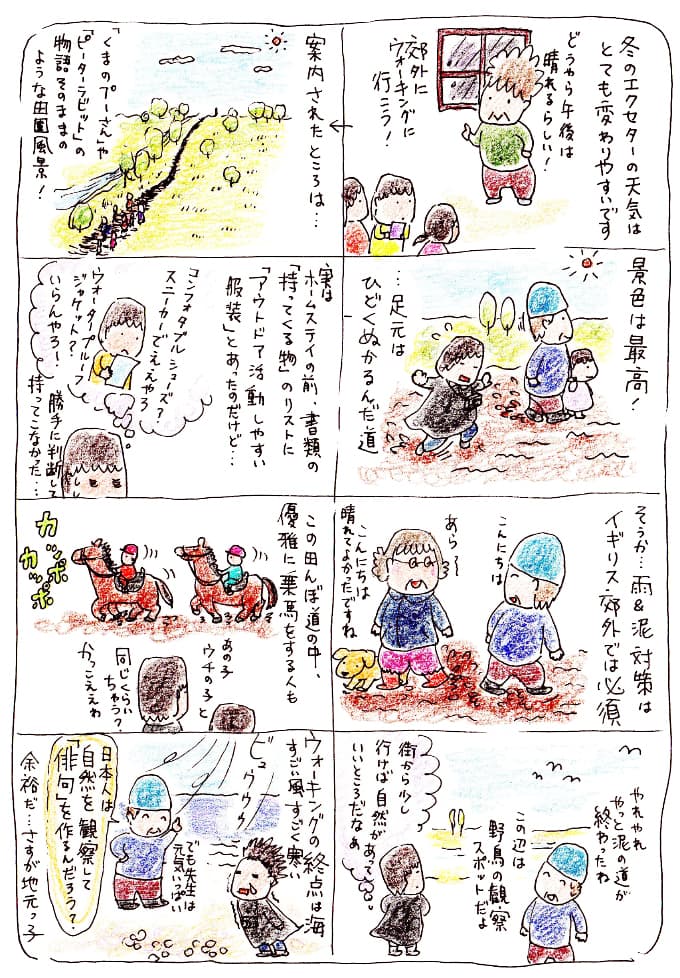 冬のエクセターの天気は
とても変わりやすいです
どうやら午後は
晴れるらしい！
郊外に
ウォーキングに
行こう！
案内されたところは…
「くまのプーさん」や
「ピーターラビット」の
物語そのままの
ような田園風景！
景色は最高！
…足元は
ひどくぬかるんだ道
実は
ホームステイの前、書類の
「持ってくる物」のリストに
「アウトドア活動しやすい
服装」とあったのだけど…
コンフォタブルシューズ？
スニーカーでええやろ
ウォータープルーフ
ジャケット？
いらんやろー！
勝手に判断して
持ってこなかった…
そうか…雨&泥対策は
イギリス郊外では必須
こんにちは
あら〜
こんにちは
晴れてよかったですね
この田んぼ道の中、
優雅に乗馬をする人も
カッポ
カッポ
あの子
ウチの子と
同じくらい
ちゃう？
かっこええわ
やれやれ
やっと泥の道が
終わったね
この辺は
野鳥の観察
スポットだよ
街から少し
行けば自然があって
いいところだなぁ
ウォーキングの終点は海
すごい風すごく寒い
ビュウウウ
でも先生は
元気いっぱい
日本人は
自然を観察して
「俳句」を作るんだろう？
余裕だ…さすが地元っ子